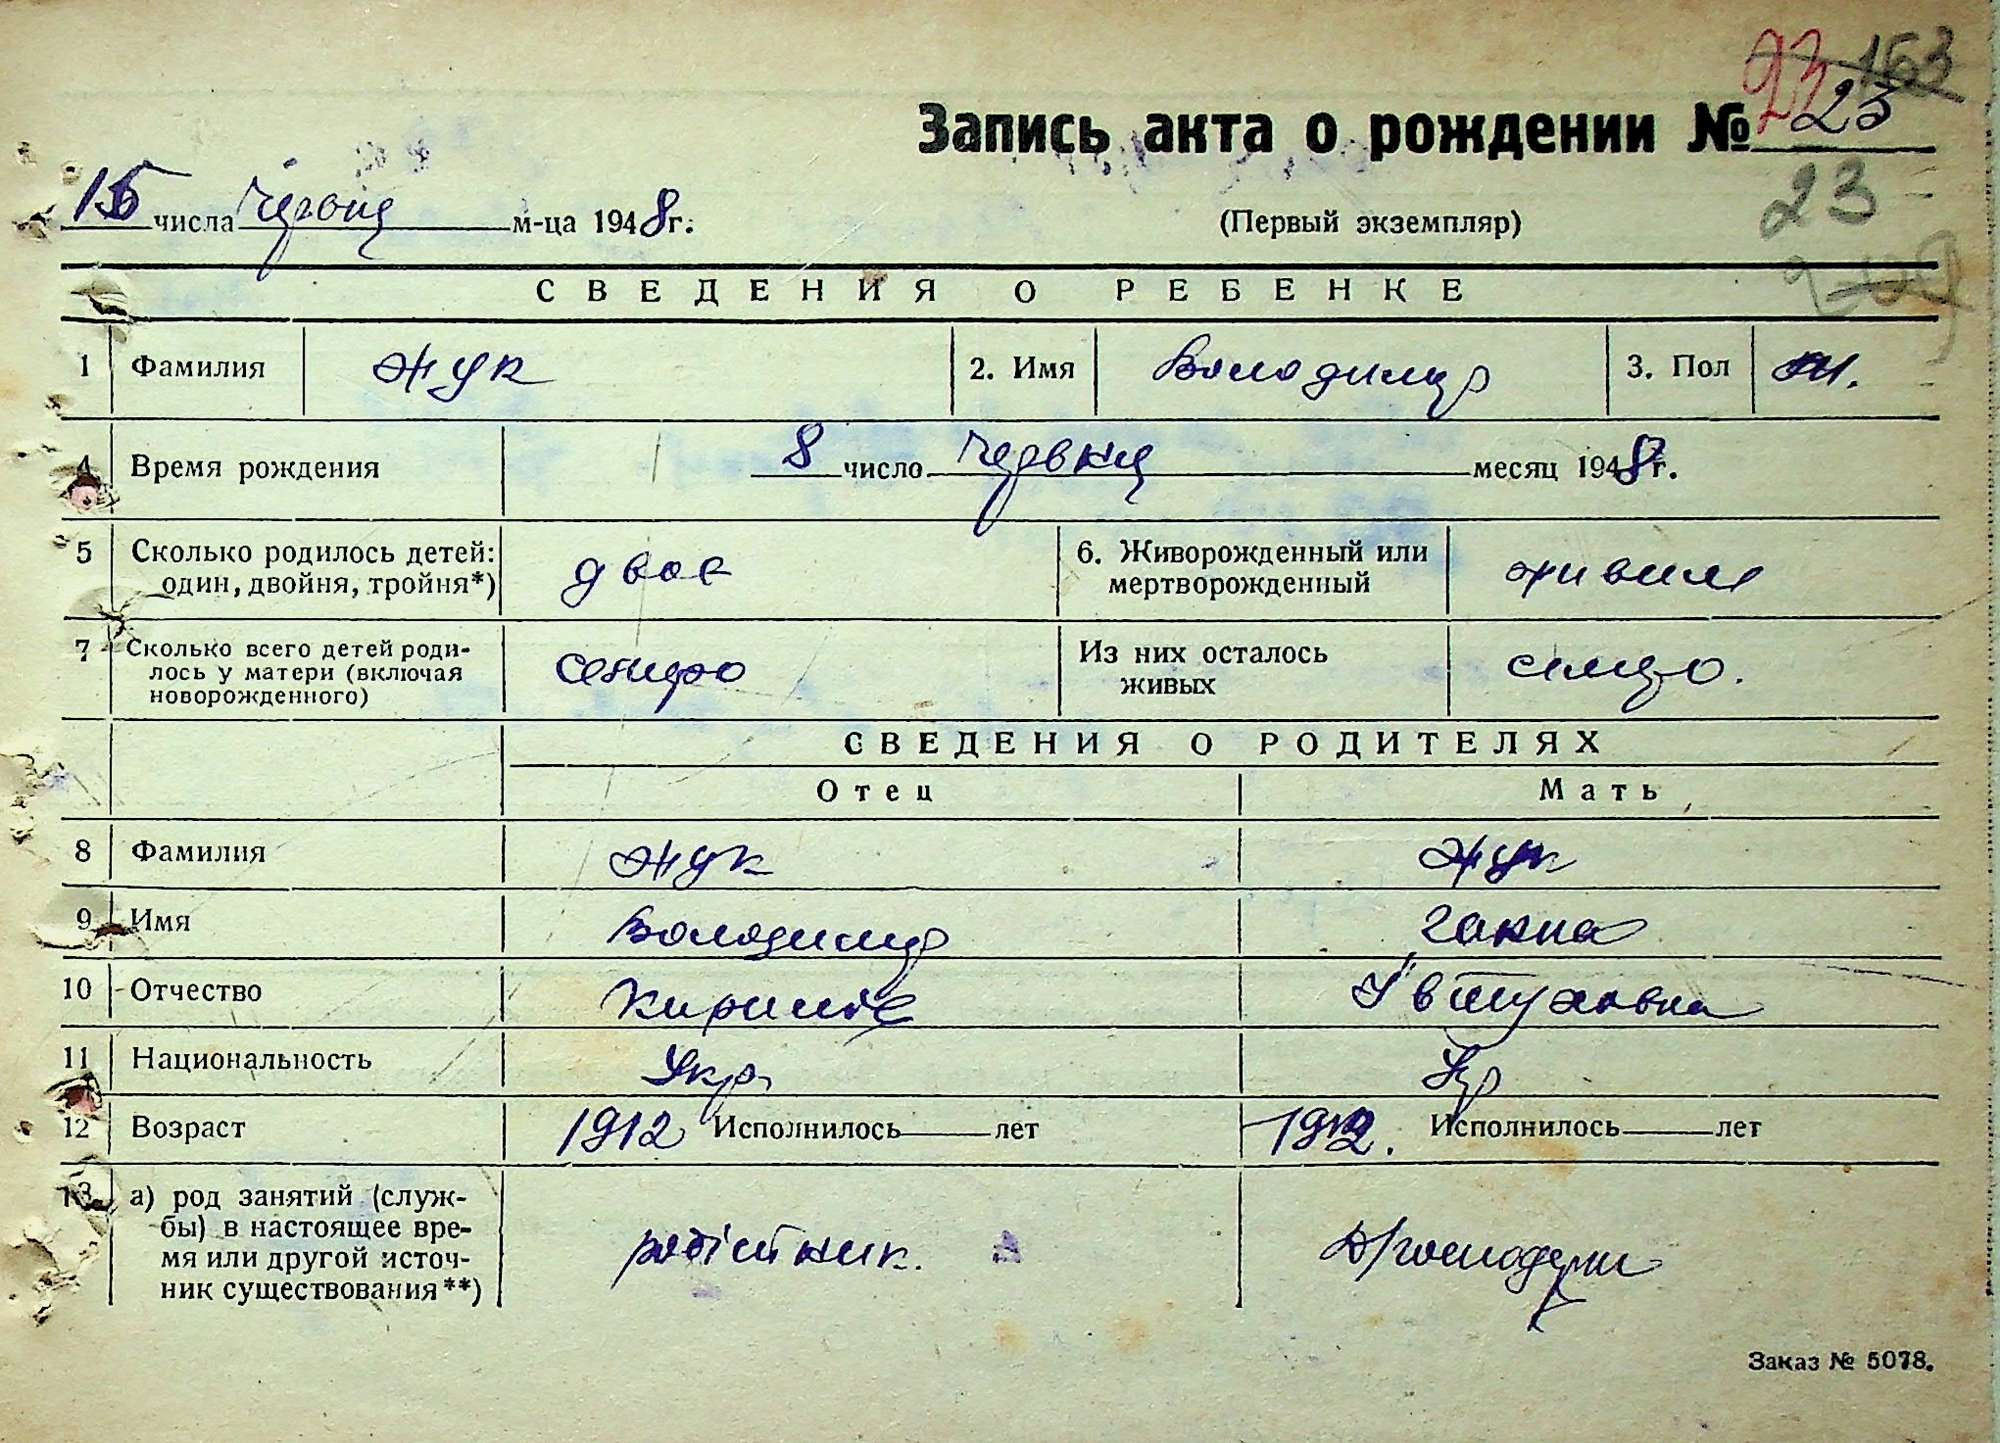 23 163
Запись акта о рождении № 23
15 числа червня м-ца 1948 г. (Первый экземпляр) 23
СВЕДЕНИЯ О РЕБЕНКЕ
1 Фамилия Жук 2. Имя Володимир 3. Пол
4 Время рождения 8 число червня месяц 1948 г.
5 Сколько родилось детей: двоє 6. Живорожденный или живими
один, двойня, тройня*) мертворожденный
7 Сколько всего детей роди- семеро Из них осталось семеро.
лось у матери (включая живых
новорожденного)
СВЕДЕНИЯ О РОДИТЕЛЯХ
Отец Мать
8 Фамилия Жук Жук
9 Имя Володимир Ганна
10 Отчество
11 Национальность Укр. Укр
12 Возраст 1912 Исполнилось лет 1912. Исполнилось лет
13 а) род занятий (служ-
бы) в настоящее вре-
мя или другой источ- робітник.
ник существования**)
Заказ № 5078.